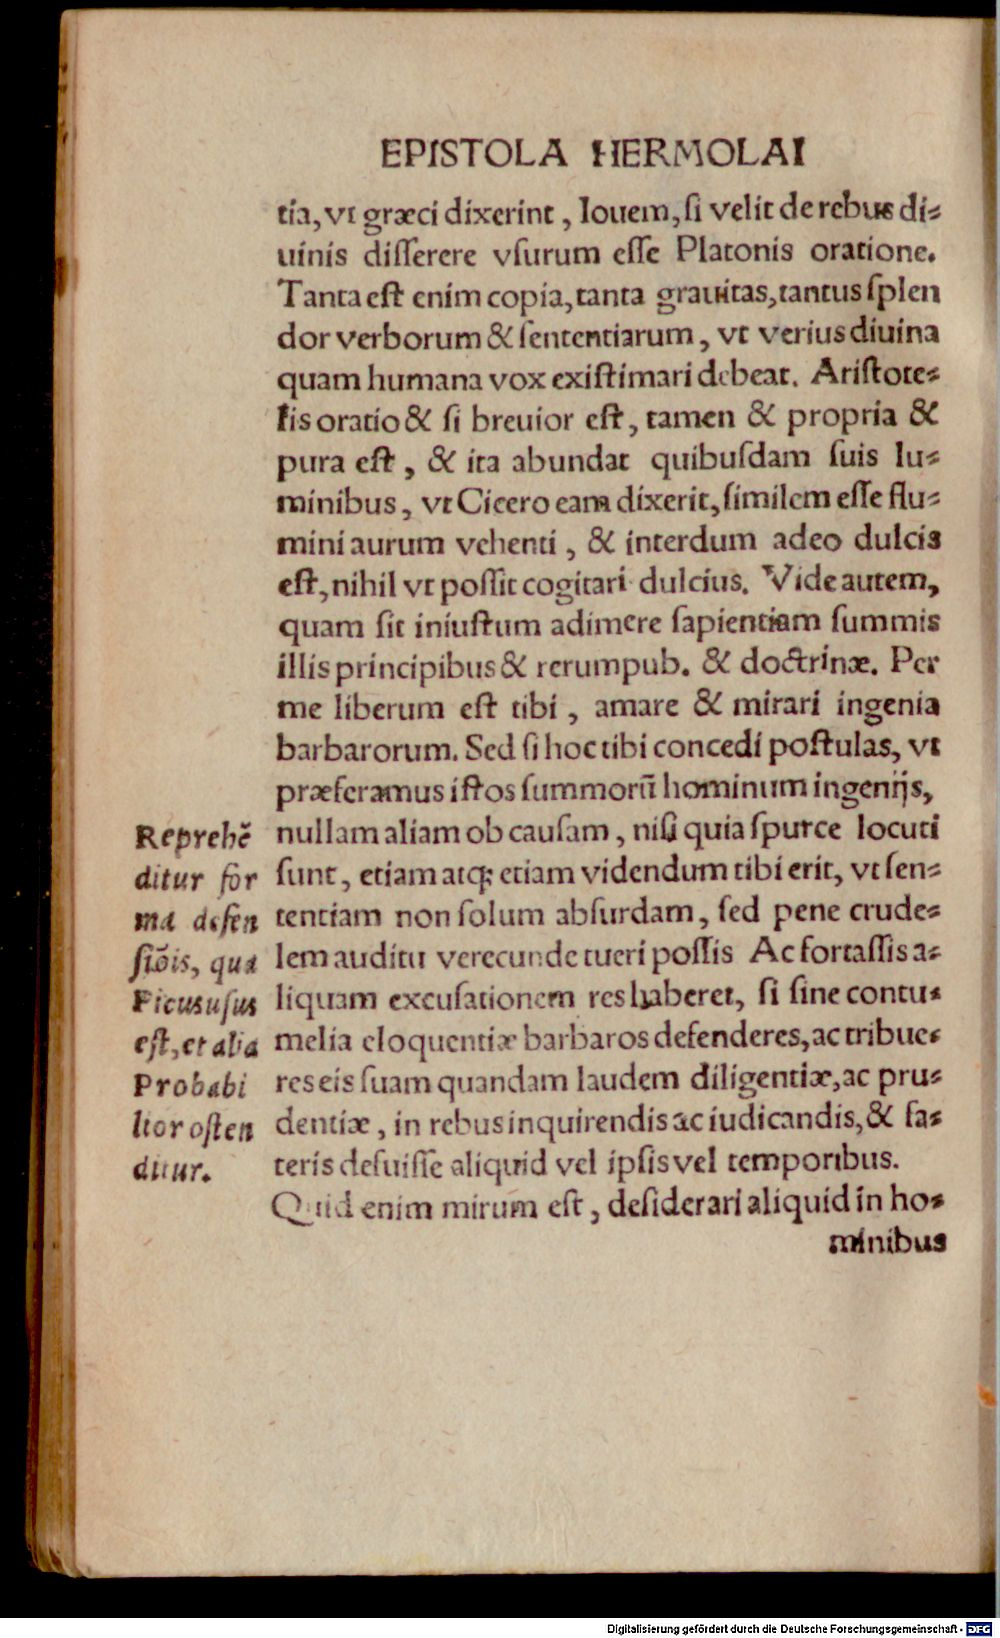 EPISTOLA HERMOLAI
tia, vt græci dixerint, Iouem, ſi velit de rebus di⸗
uinis diſſerere vſurum eſſe Platonis oratione.
Tanta eſt enim copia, tanta grauitas, tantus ſplen
dor verborum & ſententiarum, vt verius diuina
quam humana vox exiſtimari debeat. Ariſtote⸗
lis oratio & ſi breuior eſt, tamen & propria &
pura eſt, & ita abundat quibuſdam ſuis lu⸗
minibus, vt Cicero eam dixerit, ſimilem eſſe flu⸗
mini aurum vehenti, & interdum adeo dulcis
eſt, nihil vt poſſit cogitari dulcius. Vide autem,
quam ſit iniuſtum adimere ſapientiam ſummis
illis principibus & rerumpub. & doctrinæ. Per
me liberum eſt tibi, amare & mirari ingenia
barbarorum. Sed ſi hoc tibi concedi poſtulas, vt
præferamus iſtos ſummorū hominum ingenijs,
nullam aliam ob cauſam, niſi quia ſpurce locuti
ſunt, etiam atq; etiam videndum tibi erit, vt ſen⸗
tentiam non ſolum abſurdam, ſed pene crude⸗
lem auditu verecunde tueri poſſis Ac fortaſſis a⸗
liquam excuſationem res haberet, ſi ſine contu⸗
melia eloquentiæ barbaros defenderes, ac tribue⸗
res eis ſuam quandam laudem diligentiæ, ac pru⸗
dentiæ, in rebus inquirendis ac iudicandis, & fa⸗
teris defuiſſe aliquid vel ipſis vel temporibus.
Quid enim mirum eſt, deſiderari aliquid in ho⸗
minibus
Reprehē
ditur for
ma defen
ſiōis, qua
Picus uſus
eſt, et alia
Probabi
lior oſten
ditur.
Digitalisierung gefördert durch die Deutsche Forschungsgemeinschaft - DFG